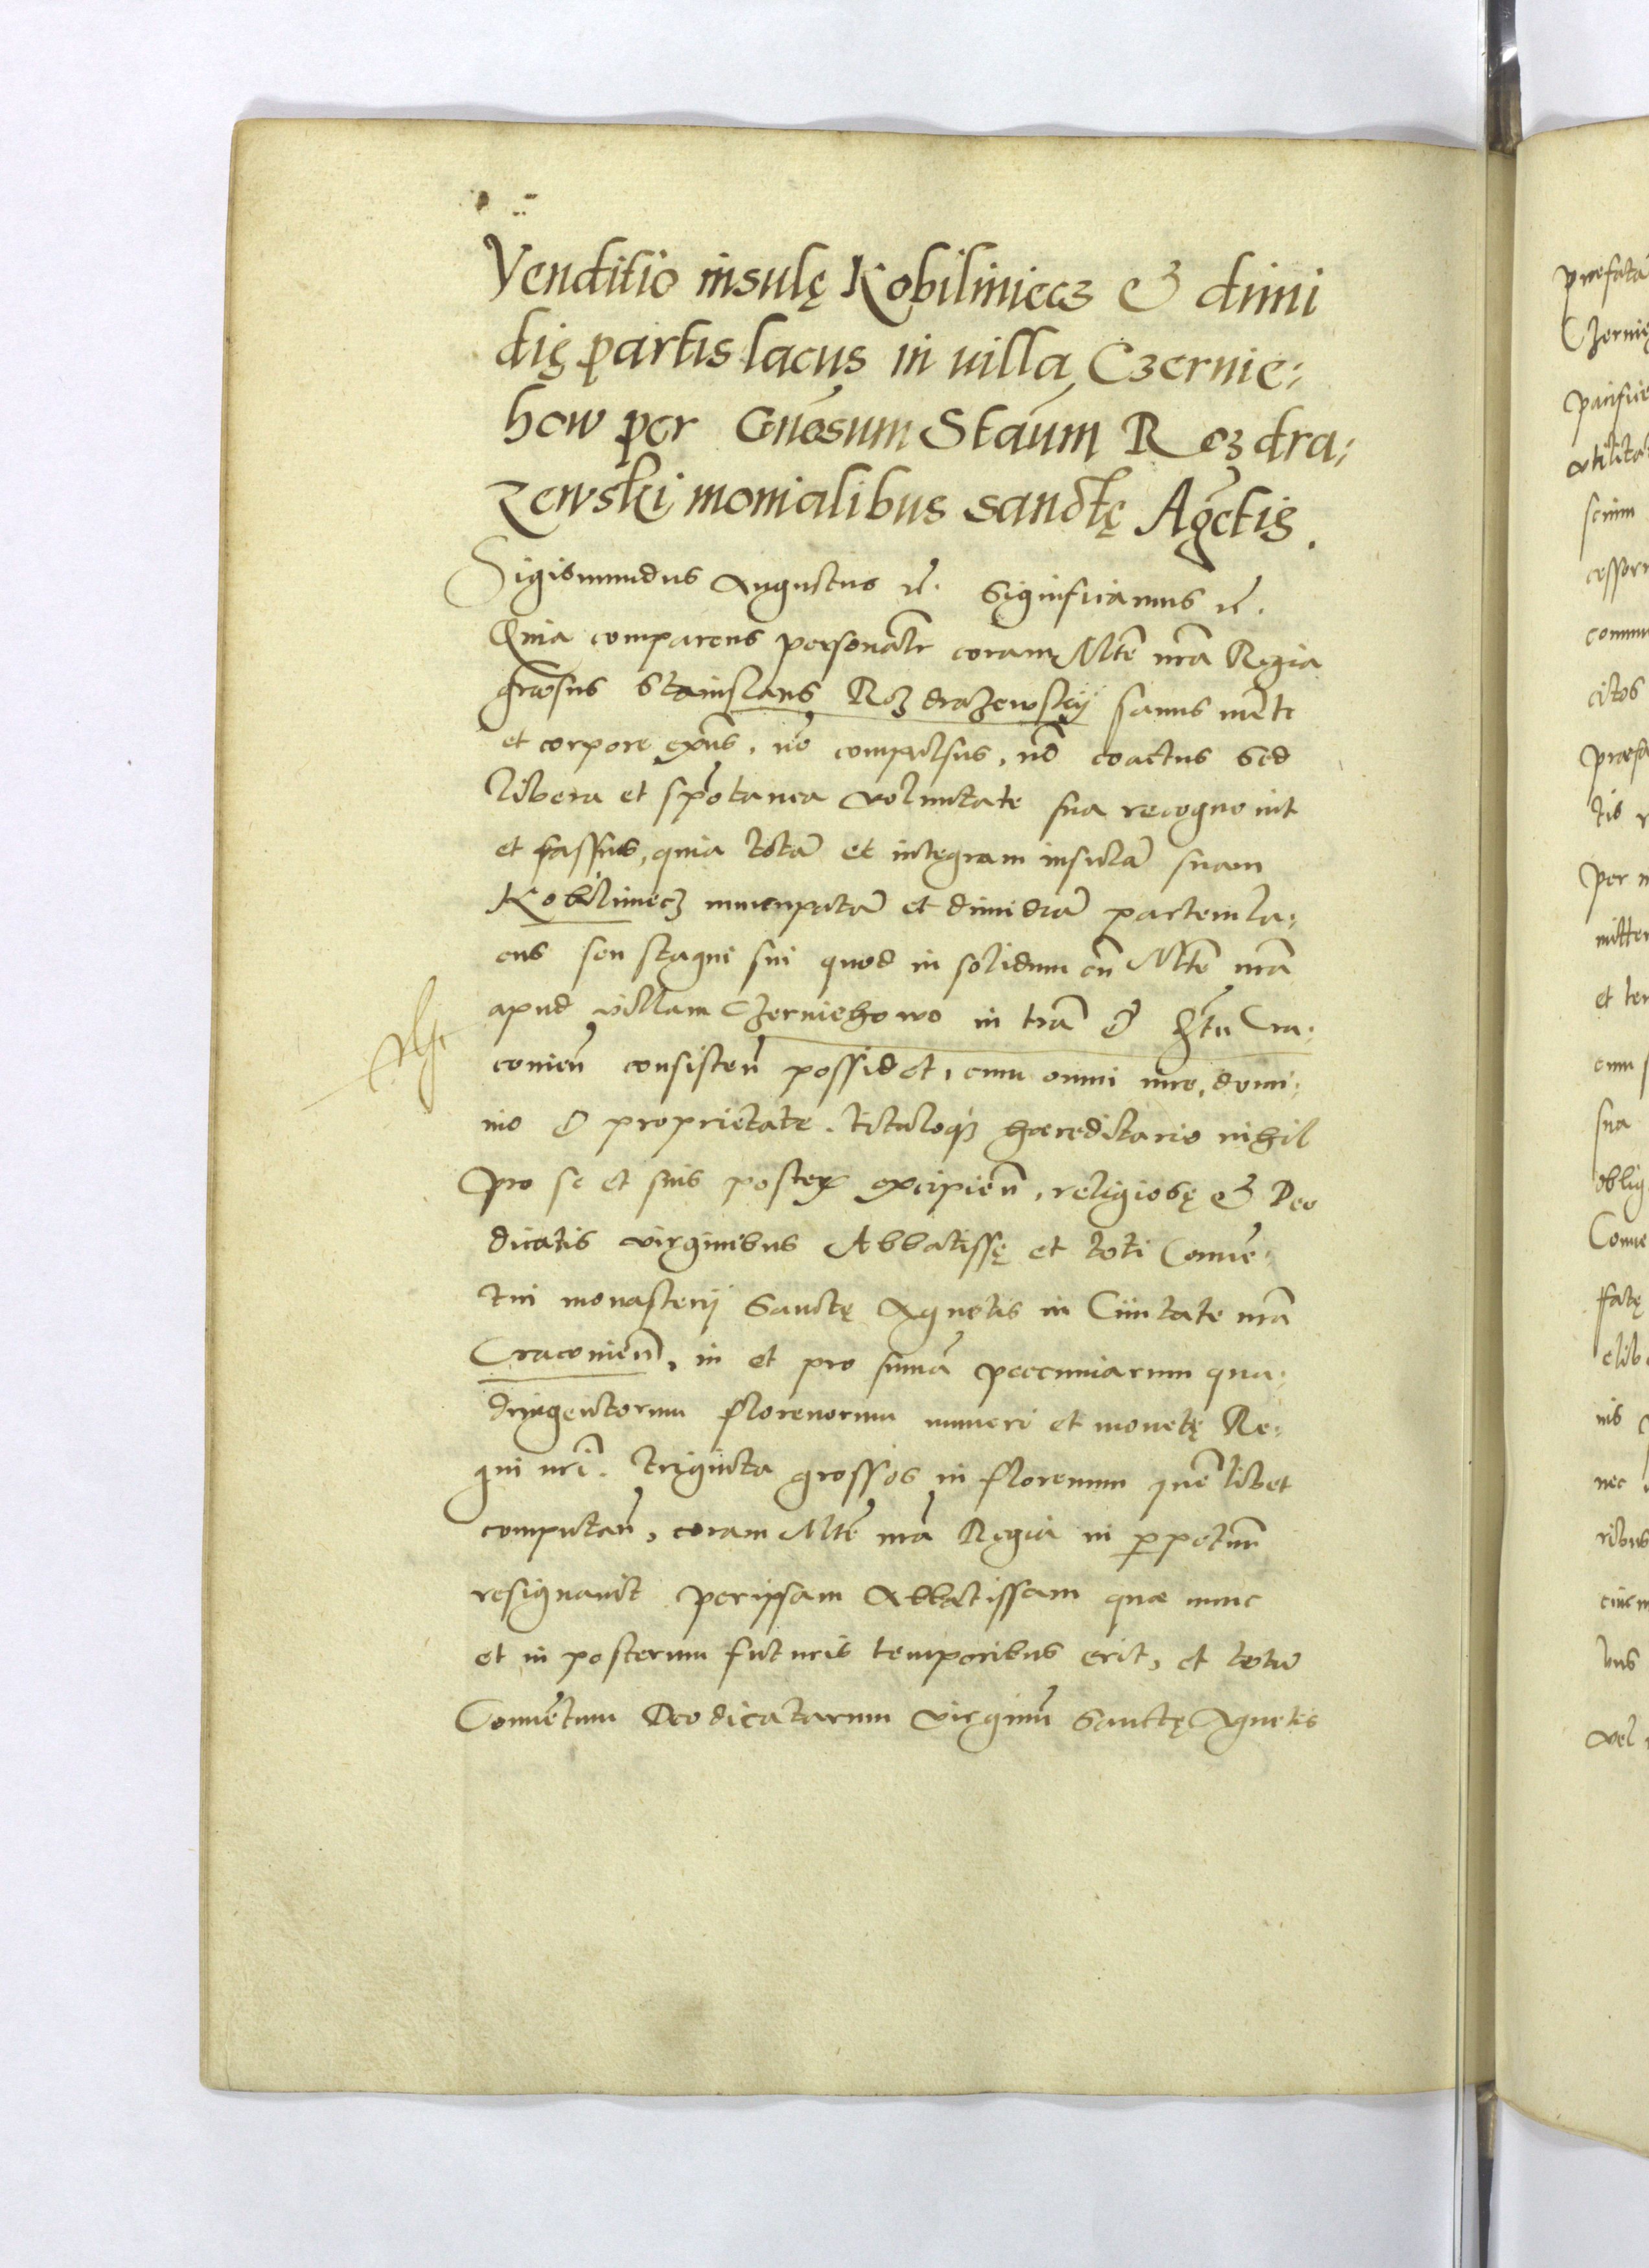 Venditio insulę Kobiliniecz & dimi
dię partis lacus in villa Czernie=
how per Gnosum Staum Rozdra=
zewski monialibus sanctę Agnetis.
Sigismundus Augustus etc. Significamus etc.
Quia comparens personalr coram Mte nra Regia
gnosus Stanislaus Rozdrazewskÿ sanus mente
et corpore exns, no compulsus, no coactus sed
libera et spotanea voluntate sua recognouit
et fassus, quia tota et integram insula suam
Kobiliniecz nuncupata et dimidia partem la=
cus seu stagni sui quod in solidum cu Mte nra
apud villam Czerniehowo in tra & Cra=
conien consisten possidet, cum omni iure, domi=
nio & proprietate, tituloq3 hæreditario nihil
pro se et suis poster excipien, religiosę & Deo
dicatis virginibus Abbatissę et toti Conue=
tui monasterij Sanctę Agnetis in Ciuitate nra
Cracouien, in et pro suma peccuniarum qua=
dringentorum florenorum numeri et monetę Re=
gni nri. triginta grossos in florenum que libet
computan, coram Mte nra Regia in perpetuu
resignauit per ipsam Abbatissam quæ nunc
et in posterum futuris temporibus erit, et totu
Conuetum Deo dicatarum virginu Sanctę Agnetis
præfata
Czernie
pacifice
vtilita
comm
citos
præfa
tis
per
mitte
et te
cum
sua
oblig
Conue
fatę
nis
nec
vel